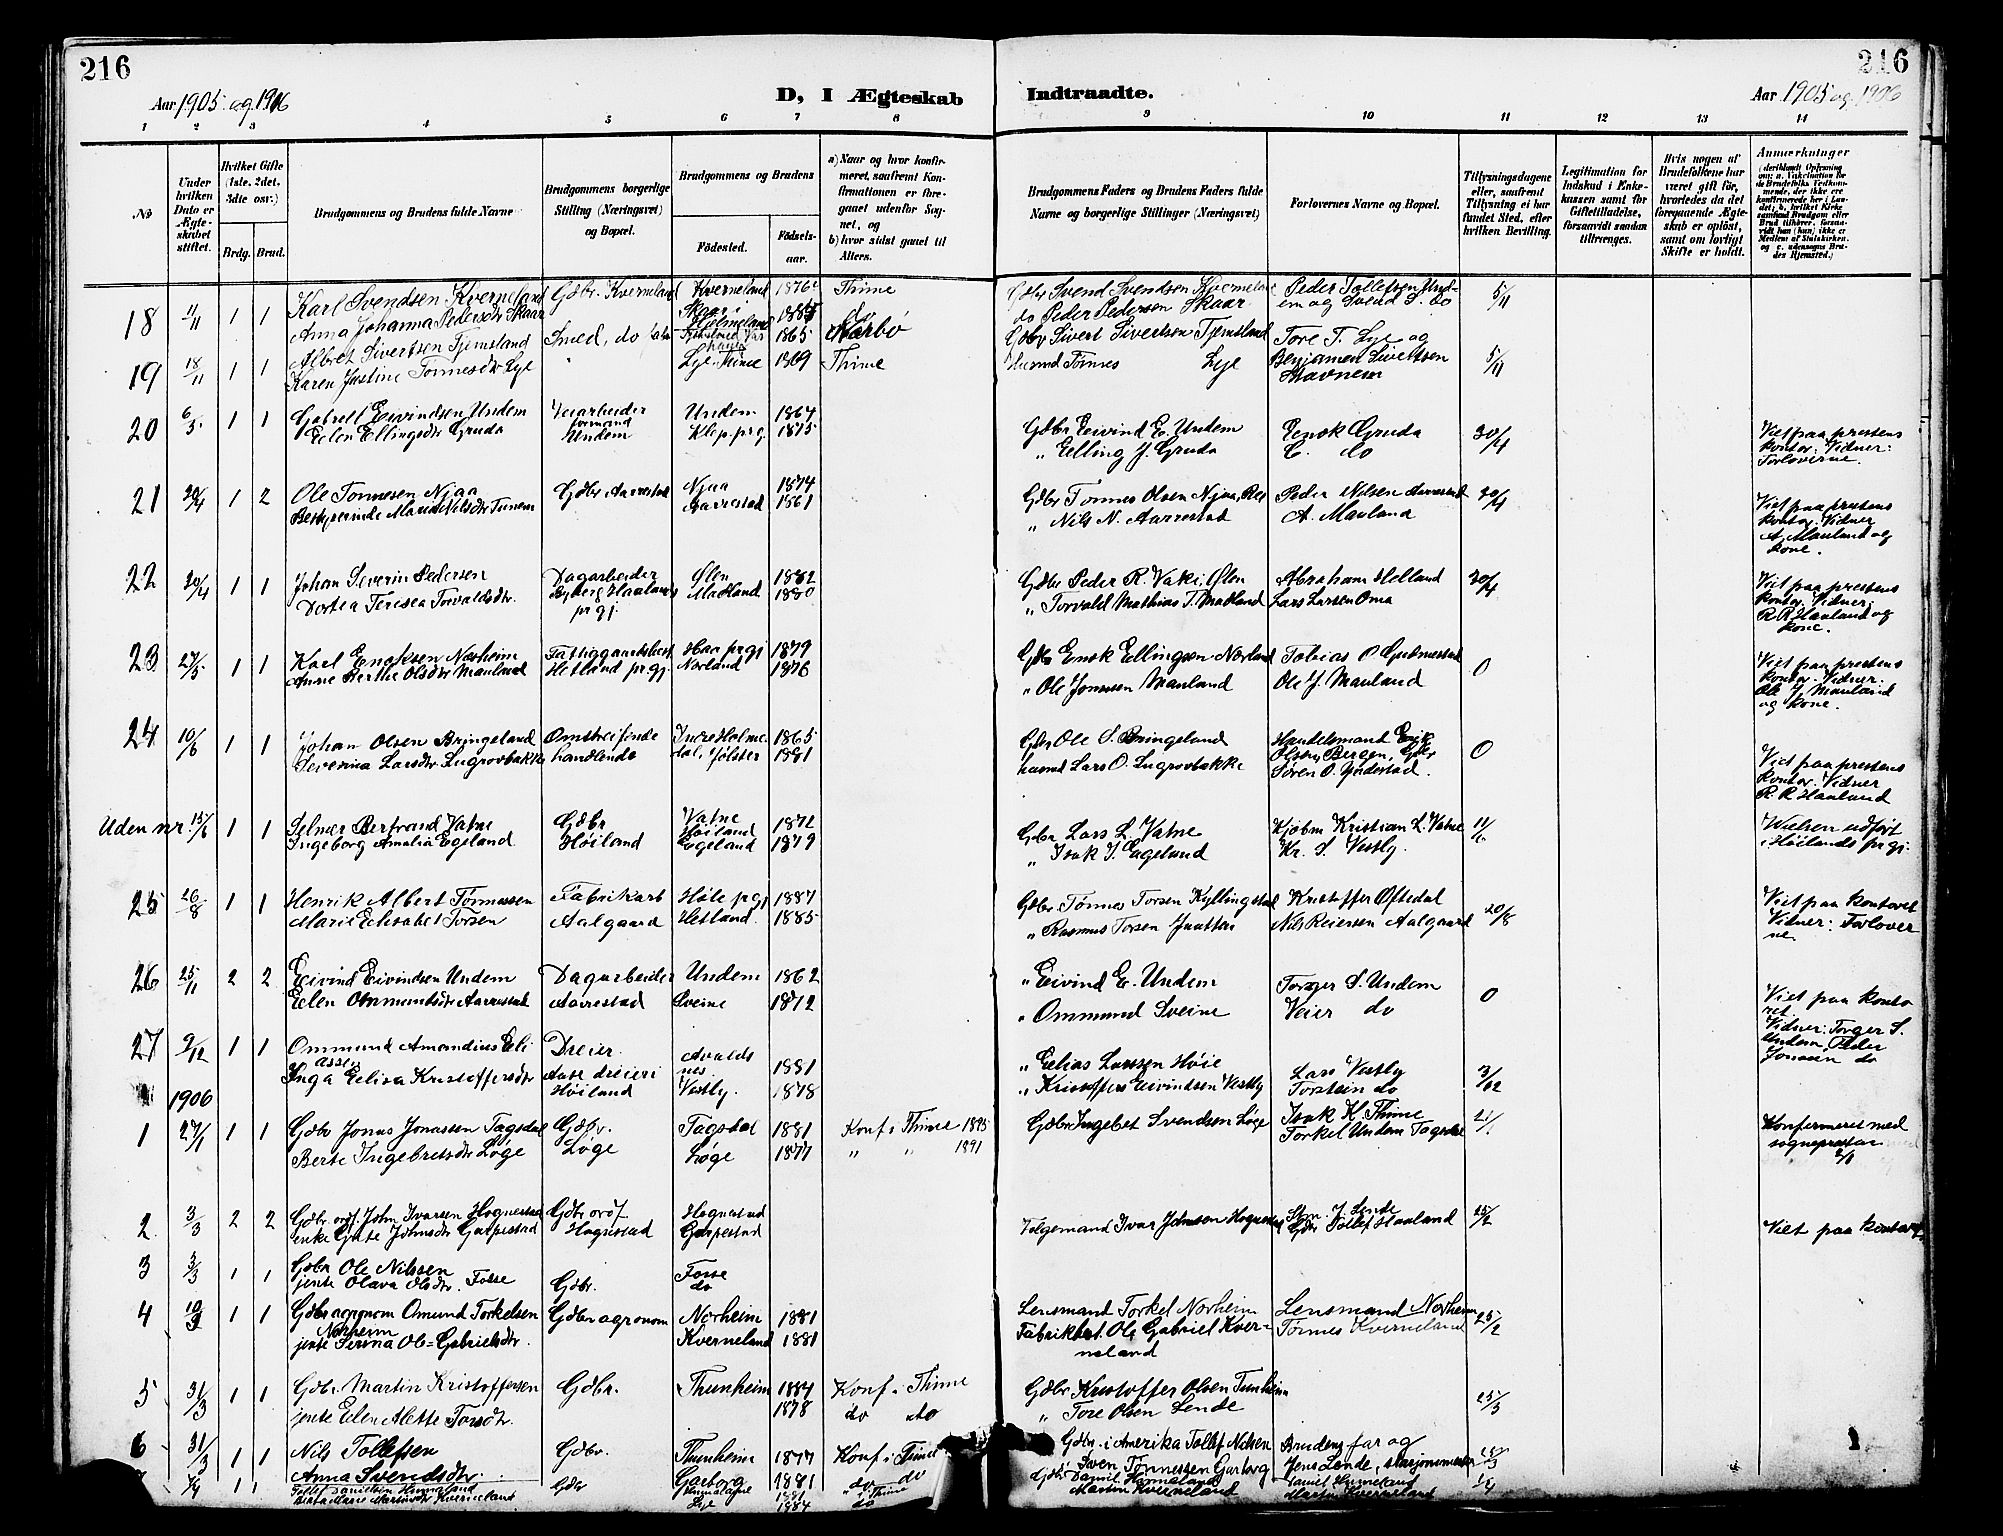 216
216
Aar 1905 og 1906
D, I Ægteskab Indtraadte.
Aar 1905 og 1906
1 2 3 4 5 6 7 8 9 10 11 12 13 14
No
Under hvilken Dato er Ægteskabet stiftet.
Hvilket Gifte (1ste, 2det, 3die osv.)
Brdg. Brud.
Brudgommens og Brudens fulde Navne
Brudgommens borgerlige Stilling (Næringsvei) og Bopæl.
Brudgommens og Brudens
Fødested.
Fødselsaar.
a) Naar og hvor konfirmeret, saafremt Konfirmationen er foregaaet udenfor Sognet, og
b) hvor sidst gaaet til Alters.
Brudgommens Faders og Brudens Faders fulde Navne og borgerlige Stillinger (Næringsvei)
Forlovernes Navne og Bopæl.
Tillysningsdagene eller, saafremt Tillysning ei har fundet Sted, efter hvilken Bevilling.
Legitimation for Indskud i Enkekassen samt for Giftetilladelse, forsaavidt saadan tiltrænges.
Hvis nogen af Brudefolkene har været gift før, hvorledes da det foregaaende Ægteskab er opløst, samt om lovligt Skifte er holdt.
Anmærkninger
18 11/11 1 1 Karl Svendsen Kverneland Gdbr. Kverneland Kverneland 1876 Thime Gdbr Svend Svendsen Kverneland Peder Tollefsen Undem og Svend S. do 5/11
Anna Johanna Pedersdtr Skaar Skaar 1885 do do Peder Pedersen Skaar
19 18/11 1 1 Albret Sivertsen Tjemsland Smed, do 1865 Gdbr Sivert Sivertsen Tjemsland Tore T. Lye og
Karen Justine Tønnesdtr Lye Lye Thime 1869 Thime Husmd Tønnes Lye Benjamen Sivertsen Stavnem 5/11
20 6/5 1 1 Gabrell Eivindsen Undem Veiarbeider formand Undem Undem 1864 Gdbr Eivind E. Undem Enok Gruda 30/4 Viet paa prestens kontor. Vidner: Forloverne.
Eelen Ellingsdtr Gruda Klep prgj 1875 " Elling J. Gruda E. do
21 20/4 1 2 Ole Tønnesen Njaa Gdbr. Aarrestad Njaa 1874 Gdbr Tønnes Olsen Njaa Peder Nilsen Aarrestad 20/4 Viet paa prestens kontor. Vidner A. Mauland og kone.
Bestyrerinde Maria Nilsdtr Tunem Aarrestad 1861 " Nils N. Aarrestad A. Mauland
22 20/4 1 1 Johan Severin Pedersen Dagarbeider Haaland prgj Ølen 1882 Gdbr Peder R. Vake, Ølen Abraham Helland 20/4 Viet paa prestens kontor. Vidner: R. R. Haaland og kone.
Dortea Teresea Torvaldsdtr. Madland 1880 " Torvald Mathias T. Madland Lars Larsen Oma
23 27/5 1 1 Karl Enoksen Nærheim Hetland prgj. Haa prgj 1879 Gdbr Enok Ellingsen Norland Tobias O. Gudmestad 0 Viet paa prestens kontor. Vidner: Ole J. Mauland og kone.
Anne Berthe Olsdtr Mauland Norland 1876 " Ole Jonsen Mauland Ole J. Mauland
24 10/6 1 1 Johan Olsen Bringeland Omstreifende handlende Indre Holmedal, Jølster 1865 Gdbr Ole S. Bringeland Handelsmand Erik Olsen Bergen, Gdbr Søren O. Yndestad. 0 Viet paa prestens kontor. Vidner R. R. Haaland
Severina Larsdtr Lugrovbakke 1881 husmd Lars O. Lugrovbakke
Uden nr. 15/6 1 1 Selmer Bertrand Vatne Gdbr Høiland Vatne Høiland 1872 Gdbr Lars L. Vatne Kjøbm Kristian L. Vatne 11/6 Vielsen udført i Høilands prgj.
Ingeborg Amalia Egeland Egeland 1879 " Isak J. Eageland Kr. S. Vestly.
25 26/8 1 1 Henrik Albert Tønnessen Fabrikarb Aalgaard Høle prgj 1887 Gdbr Tønnes Torsen Kyllingstad Kristoffer Oftedal 20/8 Viet paa kontoret Vidner: Forloverne
Marie Elisabet Torsen Hetland. 1885 " Rasmus Torsen Jaatten Nils Reiersen Aalgaard
26 25/11 2 2 Eivind Eivindsen Undem Dagarbeider Aarrestad Undem 1862 " Eivind E. Undem Torger S. Undem 0 Viet paa kontoret. Vidner: Torger S. Undem, Peder Jonsen do
Eelen Ommundsdtr Aarrestad Sveine 1872 " Ommund Sveine Veier do
27 9/12 1 1 Ommund Amandius Eliassen Dreier. Avaldsnes 1881 " Elias Larssen Høie Lars Vestly 3/12
Inga Elisa Kristoffersdtr Høiland Vestly. 1878 " Kristoffer Eivindsen Vestly Torstein do
1906
1 27/1 1 1 Gdbr Jonas Jonassen Tagsdal Gdbr. Løge 1881 Konf i Thime 1895 Gdbr. Ingebet Svendsen Løge Isak K. Thime 21/1 Konfermeret med
Berte Ingebretsdtr Løge Løge 1877 " " 1891 Torkel Undem
2 3/3 2 2 Gdbr. ordf. John Ivarsen Hognestad Gdbr ordf. Hognestad Hognestad Tolgemand Ivar Johnsen Hognestad J. Lende 25/2 Viet paa kontoret
enke Johnsdtr Garpestad Garpestad Gdbr Tollef Haaland
3 3/3 1 1 Gdbr Ole Nilssen Gdbr. Fosse
jente Olava Olsdtr. Fosse do
4 10/3 1 1 Gdbr agronom Omund Torkelsen Norheim Gdbr agronom Norheim 1881 Lensmand Torkel Norheim Lensmand Norheim 25/2
jente Serina Ole-Gabrielsdtr. Kverneland 1881 Fabrikbest. Ole Gabriel Kverneland Tønnes Kverneland
5 31/3 1 1 Gdbr. Martin Kristoffersen Gdbr. Thunheim 1884 Konf i Thime Gdbr Kristoffer Olsen Tunheim 25/3
jente Eelen Alette Torsdtr. 1878 do do " Tore Olsen Lende
6 31/3 1 1 Nils Tollefsen Gdbr. Thunheim 1877 Konf i Thime Gdbr. i Amerika Tollef Nilsen Brudens far og
Anna Svendsdtr. Garborg 1881 do do Sven Tønnessen Garborg Jens Lende, stasjonsmester
7 1 1 Tollef Danielsen Gdbr 1881 Thime Gdbr. Daniel
Marie Martinsdtr Kverneland Lye 1884 do Martin Kverneland Martin Kverneland